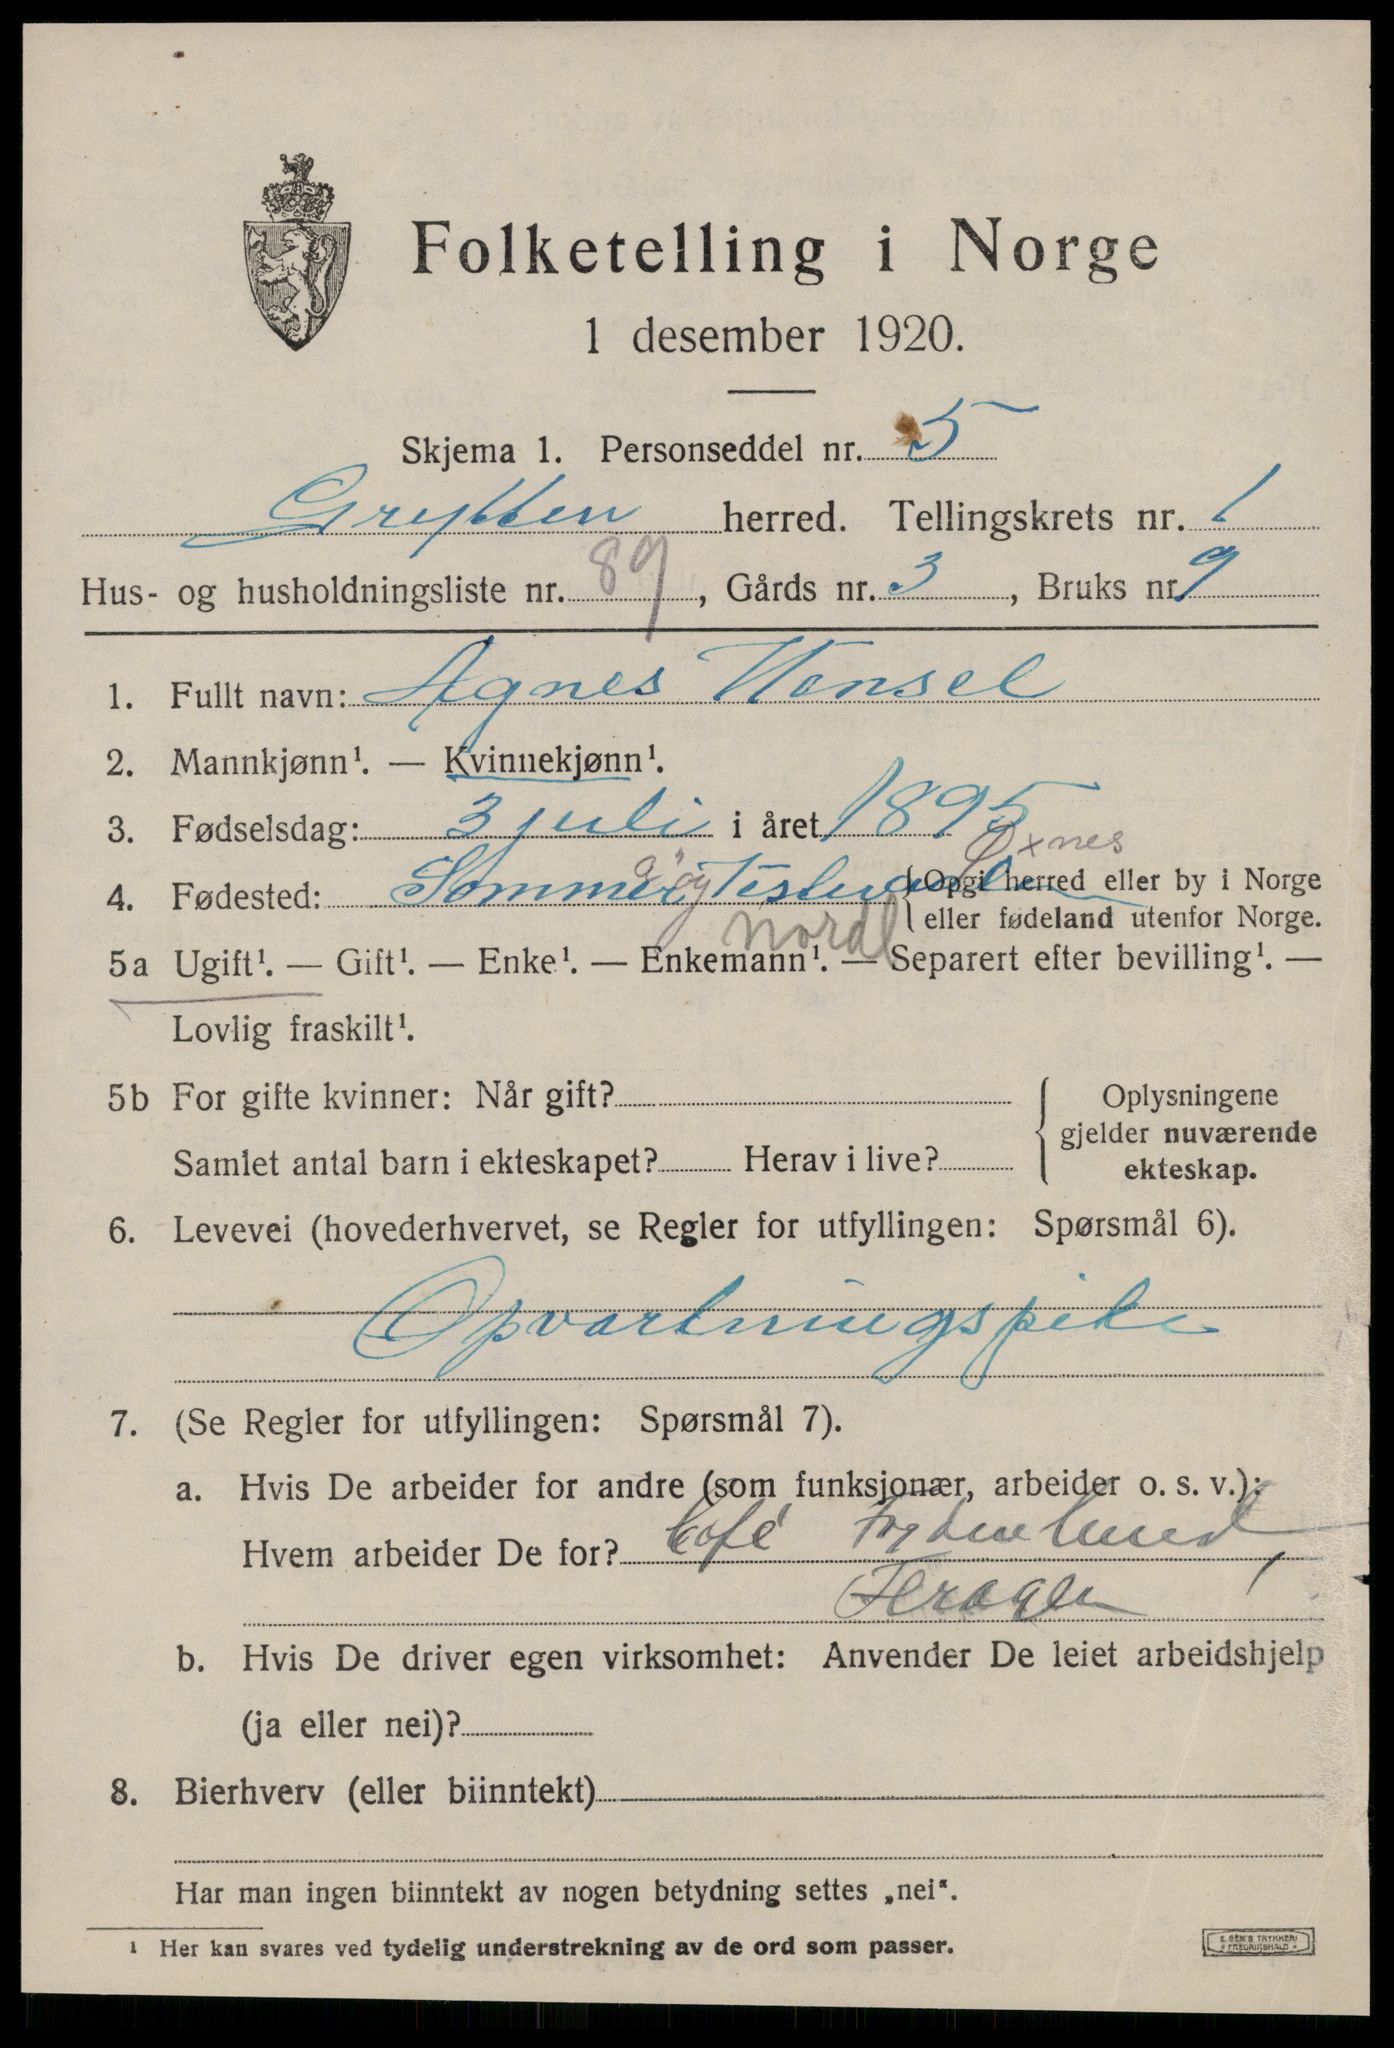 Folketelling i Norge
1 desember 1920.
Skjema 1. Personseddel nr. 5
Grytten herred. Tellingskrets nr. 1
Hus- og husholdningsliste nr. 89, Gårds nr. 3, Bruks nr. 9
1. Fullt navn: Agnes Hensel
2. Mannkjønn¹. — Kvinnekjønn¹.
Øxnes
3. Fødselsdag: 3 juli i året 1895
4. Fødested: {Opgi herred eller by i Norge
eller fødeland utenfor Norge.
Nordl
5a Ugift¹. — Gift¹. — Enke¹. — Enkemann¹. — Separert efter bevilling¹. —
Lovlig fraskilt¹.
5b For gifte kvinner: Når gift? { Oplysningene
gjelder nuværende
Samlet antal barn i ekteskapet? Herav i live? ekteskap.
6. Levevei (hovederhvervet, se Regler for utfyllingen: Spørsmål 6).
Opvartningspike
7. (Se Regler for utfyllingen: Spørsmål 7).
a. Hvis De arbeider for andre (som funksjonær, arbeider o. s. v.):
Hvem arbeider De for? Café Frydenlund,
b. Hvis De driver egen virksomhet: Anvender De leiet arbeidshjelp
(ja eller nei)?
8. Bierhverv (eller biinntekt)
Har man ingen biinntekt av nogen betydning settes „nei“.
¹ Her kan svares ved tydelig understrekning av de ord som passer.
E. SEM'S TRYKKERI
FREDRIKSHALD